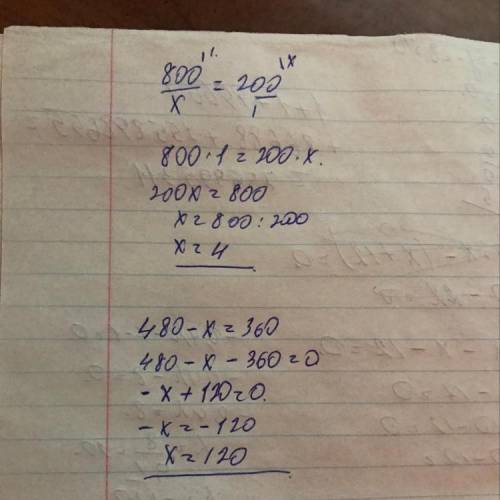 800 \1 / x = 200 \x / 1
800 · 1 = 200 · x.
200x = 800
x = 800 : 200
x = 4
480 - x = 360
480 - x - 360 = 0
- x + 120 = 0.
- x = - 120
x = 120